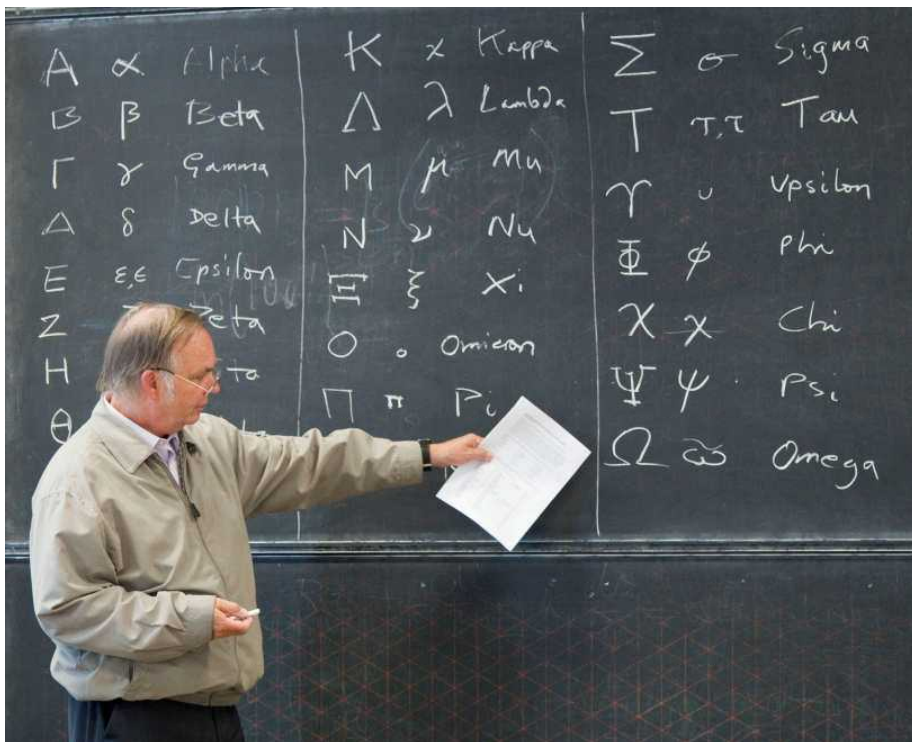 Α α Alpha
Β β Beta
Γ γ Gamma
Δ δ Delta
Ε ε,ϵ Epsilon
Ζ Zeta
Η
Θ
Κ κ Kappa
Λ λ Lambda
Μ μ Mu
Ν ν Nu
Ξ ξ Xi
Ο ο Omicron
Π π Pi
Σ σ Sigma
Τ τ,τ Tau
ϒ υ Upsilon
Φ ϕ Phi
Χ χ Chi
Ψ ψ Psi
Ω ω Omega